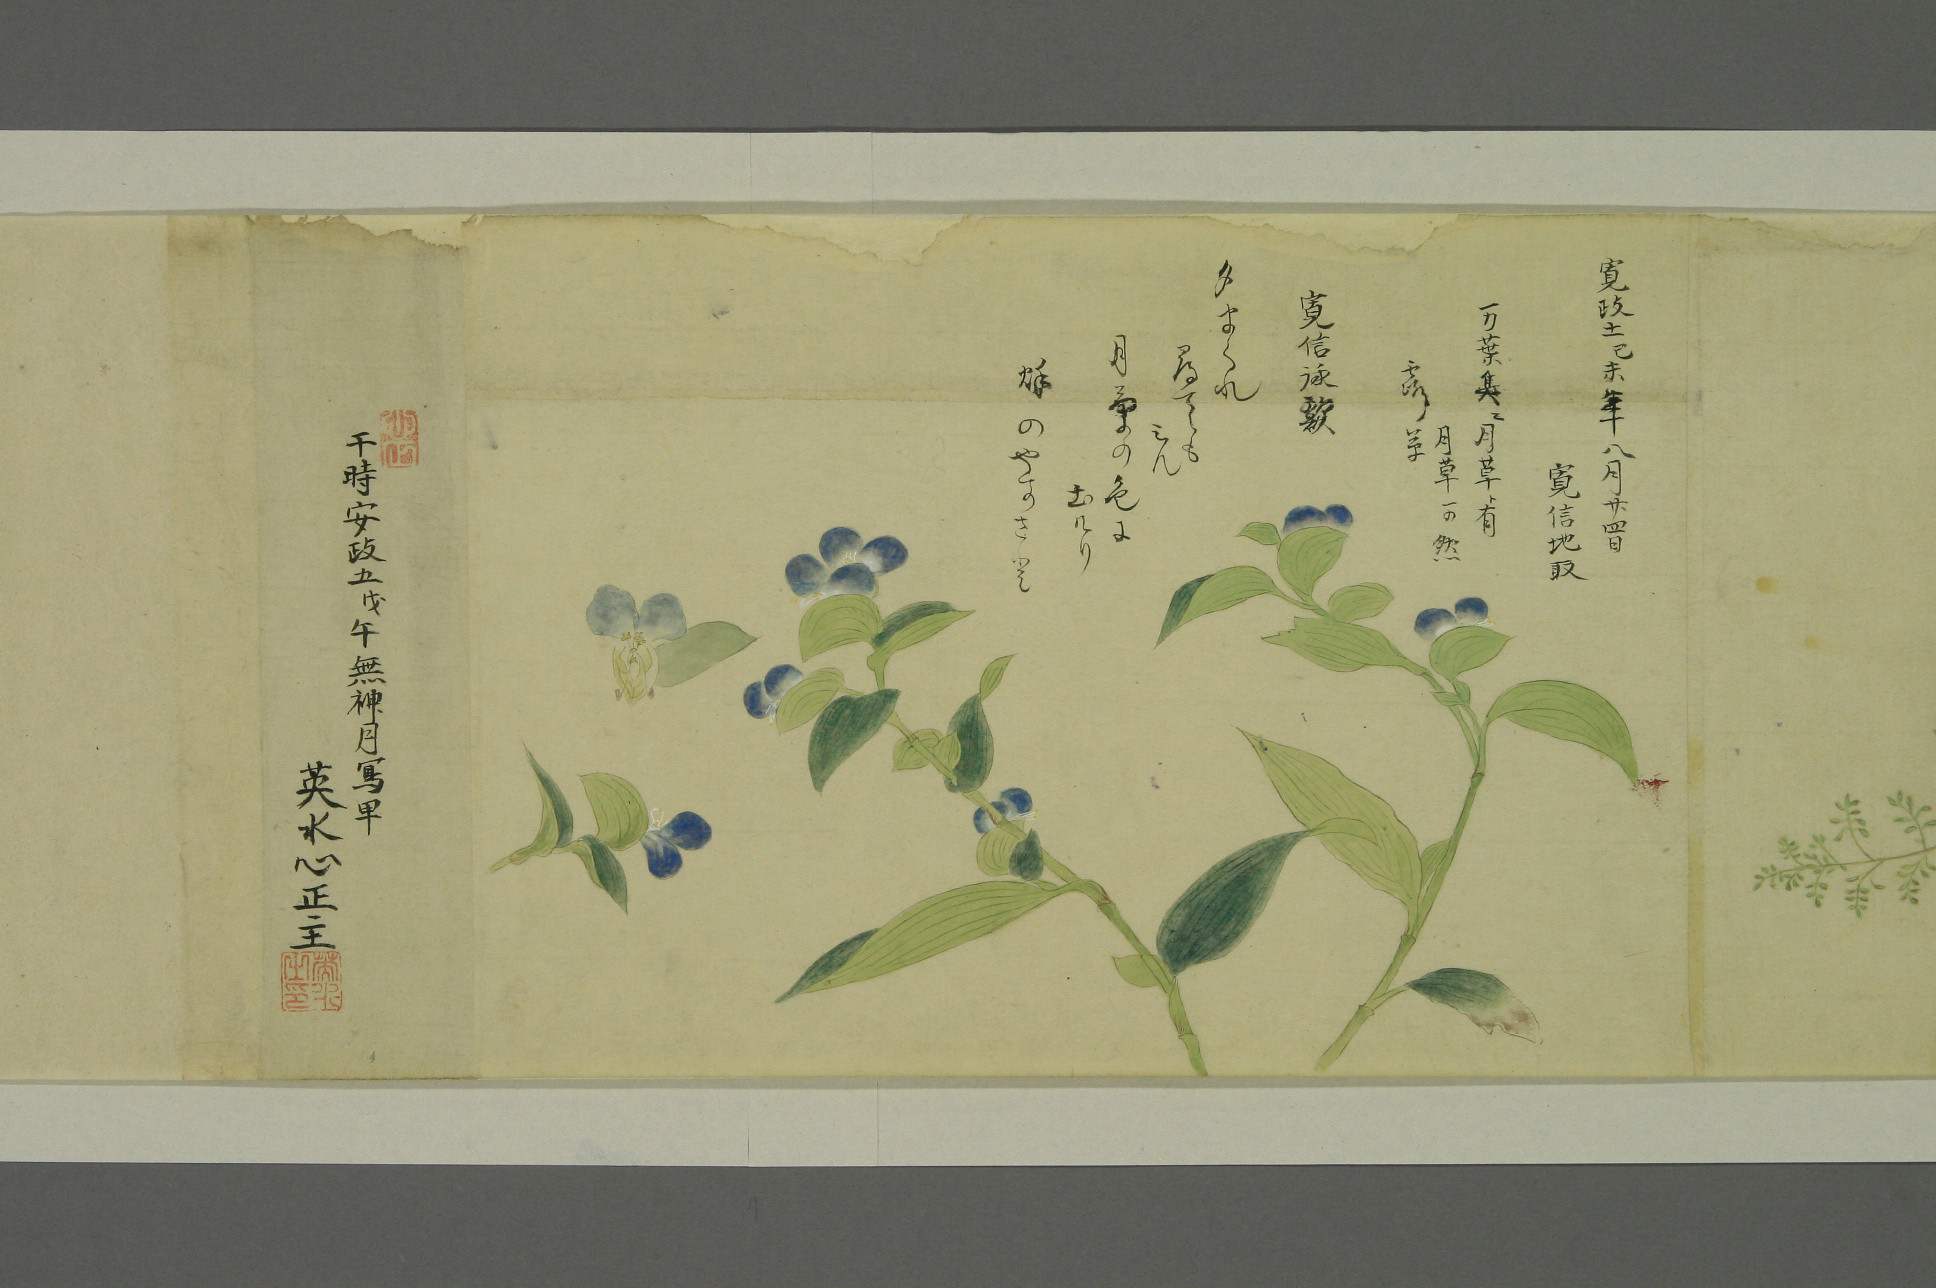 寛政十一己未年八月廿四日
寛信地取
万葉集ニ月草ト有
月草可然
露草
寛信詠歌
夕まくれ
尋ても
みん
月草の色に
出けり
秋のやまさと
于時安政五戊午無神月写畢
英水心正主